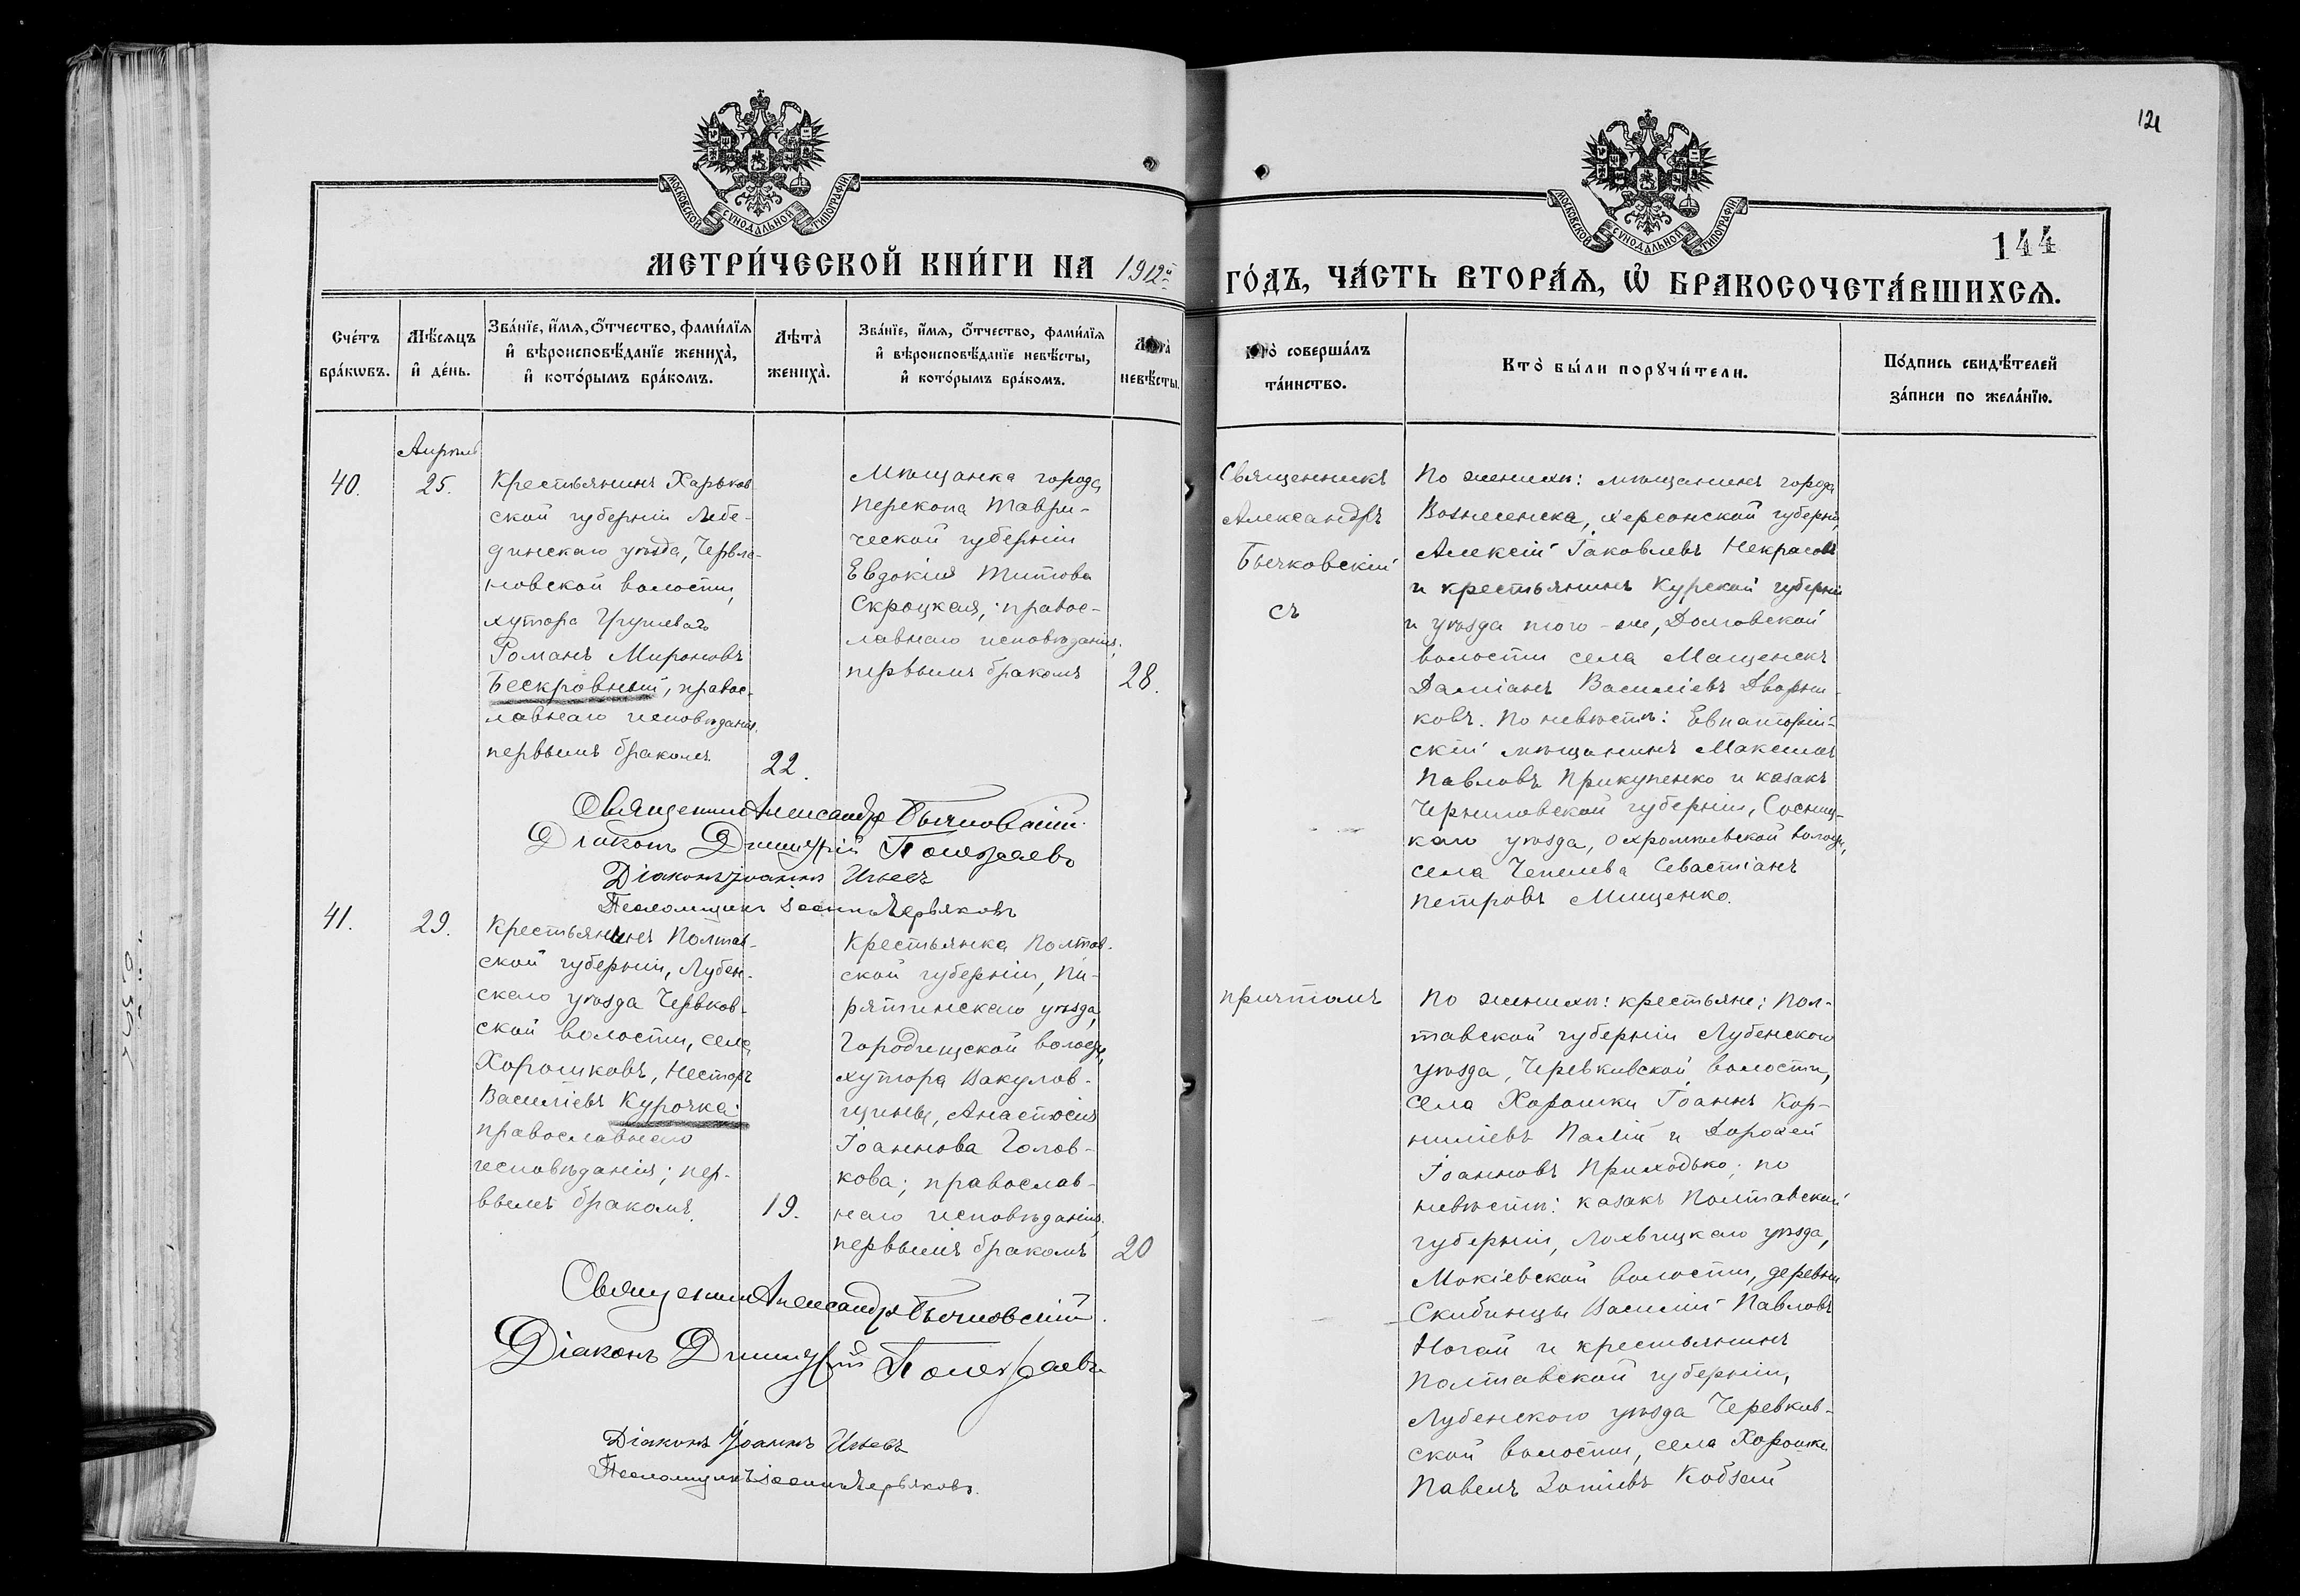 121
МОСКОВСКОЙ СѴНОДАЛЬНОЙ ТИПОГРАФІИ
МОСКОВСКОЙ СѴНОДАЛЬНОЙ ТИПОГРАФІИ
144
МЕТРИ́ЧЕСКОЙ КНИ́ГИ НА 1912й
ГО́ДЪ, ЧА́СТЬ ВТОРА́Ѧ, Ѡ҆ БРАКОСОЧЕТА́ВШИХСѦ.
Сче́тъ
бра́кѡвъ.
Мѣ́сѧцъ
и҆ де́нь.
Зва́нїе, и҆́мѧ, ѻ҆́тчество, фами́лїѧ
и҆ вѣроисповѣ́данїе жениха̀,
и҆ кото́рымъ бра́комъ.
Лѣта̀
жениха̀.
Зва́нїе, и҆́мѧ, ѻ҆́тчество, фами́лїѧ
и҆ вѣроисповѣ́данїе невѣ́сты,
и҆ кото́рымъ бра́комъ.
Лѣта̀
невѣ́сты.
Кто̀ соверша́лъ
та́инство.
Кто̀ бы́ли порꙋчи́тели.
По́дпись свидѣ́телей
за́писи по жела́нїю.
Апрѣль
40.
25.
Крестьянинъ Харьков-
ской губерніи Лебе-
динскаго уѣзда, Червле-
новской волости,
хутора
Романъ Мироновъ
Бескровный, правос-
лавнаго исповѣданія,
первымъ бракомъ.
22.
Мѣщанка города
Перекопа Таври-
ческой губерніи
Евдокія Титова
Скроцкая, правос-
лавнаго исповѣданія,
первымъ бракомъ
28.
Священникъ
Александръ
Бычковскій
съ
По женихѣ: мѣщанинъ города
Вознесенска, Херсонской губерніи,
Алексій Іаковлевъ Некрасовъ
и крестьянинъ Курской губерніи
и уѣзда того-же, Долговской
волости села Мащенекъ
Даміанъ Василіевъ Дворни-
ковъ. По невѣстѣ: Евпаторій-
скій мѣщанинъ Максимъ
Павловъ Прикупенко и казакъ
Черниговской губерніи, Сосниц-
каго уѣзда, Охромѣевской волости,
села Чепелева Севастіанъ
Петровъ Мищенко.
Священникъ Александръ Бычковскій.
Діаконъ Димитрій
Діаконъ Іоаннъ
Псаломщикъ Червяковъ
41.
29.
Крестьянинъ Полтав-
ской губерніи, Лубен-
скаго уѣзда Червков-
ской волости, села
Хорошковъ, Несторъ
Василіевъ Курочка
православнаго
исповѣданія; пер-
вымъ бракомъ.
19.
Крестьянка Полтав-
ской губерніи, Пи-
рятинскаго уѣзда,
Городищской волости,
хутора Вакулов-
щины, Анастасія
Іоаннова Голов-
кова; православ-
наго исповѣданія,
первымъ бракомъ
20
причтомъ
По женихѣ: крестьяне: Пол-
тавской губерніи Лубенскаго
уѣзда, Черевкивской волости,
села Хорошки Іоаннъ Кор-
ниліевъ Палій и Дорофей
Іоанновъ Приходько; по
невѣстѣ: казакъ Полтавской
губерніи, Лохвицкаго уѣзда,
Мокіевской волости, деревни
Скибинцы Василій Павловъ
Ногай и крестьянинъ
Полтавской губерніи,
Лубенскаго уѣзда Черевкив-
ской волости, села Хорошки
Павелъ Кобзей
Священникъ Александръ Бычковскій.
Діаконъ Димитрій
Діаконъ Іоаннъ
Псаломщикъ Червяковъ.